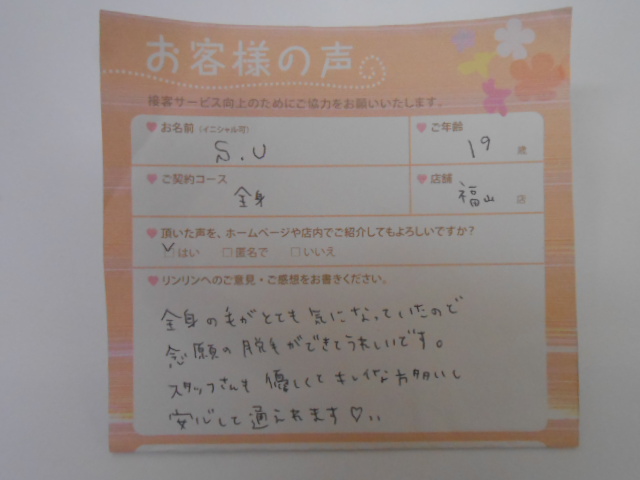 お客様の声
接客サービス向上のためにご協力をお願いいたします。
お名前（イニシャル可）
S.U
ご年齢
19 歳
ご契約コース
全身
店舗
福山 店
頂いた声を、ホームページや店内でご紹介してもよろしいですか？
☑はい □匿名で □いいえ
リンリンへのご意見・ご感想をお書きください。
全身の毛がとても気になっていたので
念願の脱毛ができてうれしいです。
スタッフさんも優しくてキレイな方多いし
安心して通えれます♡..